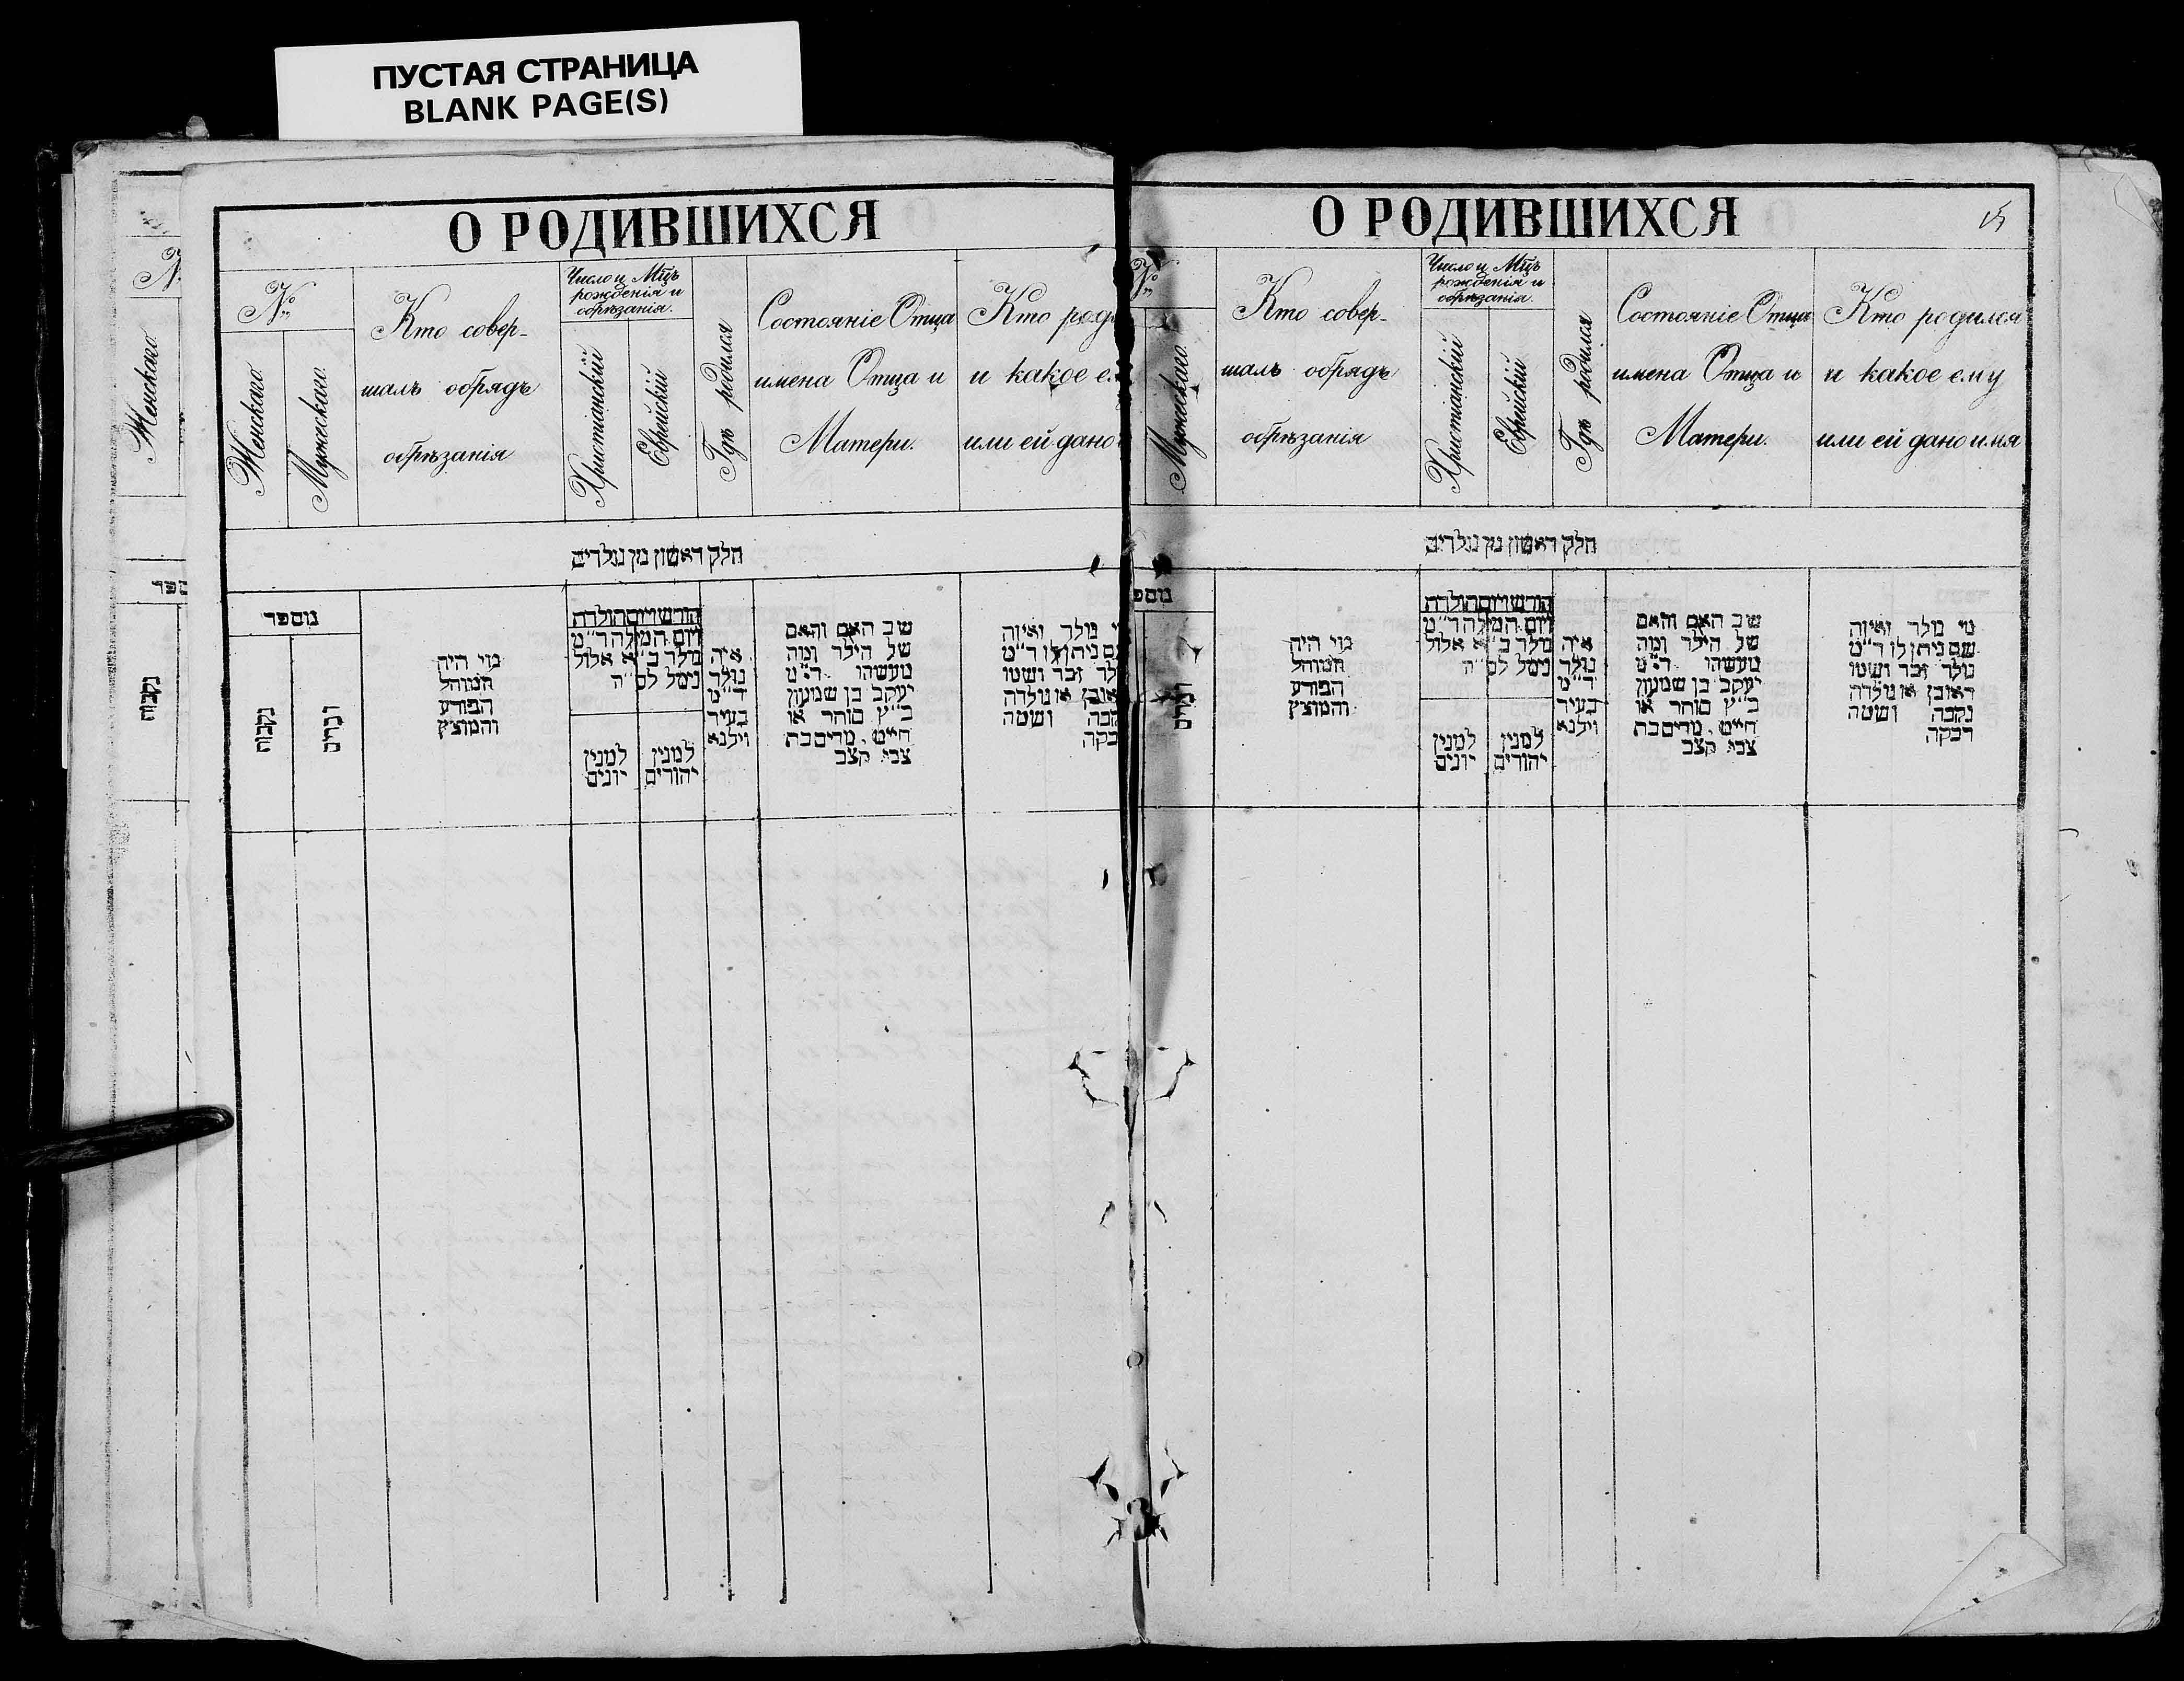 ПУСТАЯ СТРАНИЦА
BLANK PAGE(S)
№
Женскаго
ספר
נקבות
О РОДИВШИХСЯ
№
Женскаго.
Мужескаго.
Кто совер-
шалъ обрядъ
обрѣзанія
Число и Мцъ
рожденія и
обрѣзанія.
Христіанскій
Еврейскій
Гдѣ родился
Состояніе Отца
имена Отца и
Матери.
Кто род
и какое е
или ей дано
חלק ראשון מן נולדים
מוספר
נקבות
זכרים
מי היה
המוהל
הפורע
והמוצץ
חודש ויום הולדת
ויום המילה ד״מ
נולד כ״א אלול
נימל לס״ה
למנין
יונים
למנין
יהודים
איה
נולד
ד״מ
בעיר
וילנא
שב האם והאם
של הילד ומה
מעשהו ד״מ
יעקב בן שמעון
כ״ץ סוחר או
חייט, מרים בת
צבי קצב
נולד ואיזה
ניתן לו ד״מ
זכר ושמו
או נולדה
ושמה
О РОДИВШИХСЯ
№
Мужескаго.
Кто совер-
шалъ обрядъ
обрѣзанія
Число и Мцъ
рожденія и
обрѣзанія.
Христіанскій
Еврейскій
Гдѣ родился
Состояніе Отца
имена Отца и
Матери.
Кто родился
и какое ему
или ей дано имя
חלק ראשון מן נולדים
מוספ
זכרים
מי היה
המוהל
הפורע
והמוצץ
חודש ויום הולדת
ויום המילה ד״מ
נולד כ״א אלול
נימל לס״ה
למנין
יונים
למנין
יהודים
איה
נולד
ד״מ
בעיר
וילנא
שב האם והאם
של הילד ומה
מעשהו ד״מ
יעקב בן שמעון
כ״ץ סוחר או
חייט, מרים בת
צבי קצב
מי נולד ואיזה
שם ניתן לו ד״מ
נולד זכר ושמו
ראובן או נולדה
נקבה ושמה
רבקה